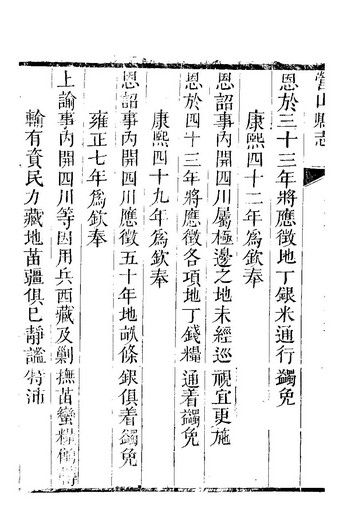 營山縣志
恩於三十三年將應徵地丁銀米通行蠲免
康熙四十二年爲欽奉
恩詔事內開四川屬極邊之地未經巡視宜更施
恩於四十三年將應徵各項地丁錢糧通着蠲免
康熙四十九年爲欽奉
恩詔事內開四川應徵五十年地畝條銀俱着蠲免
雍正七年爲欽奉
上諭事內開四川等因用兵西藏及剿撫苗蠻糧
輸有資民力藏地苗疆俱已靜謐特沛